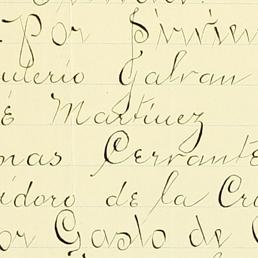 Por Sirvien
uterio Galvan
é Martínez
mas Cervante
idoro de la Cru
or Gasto de C